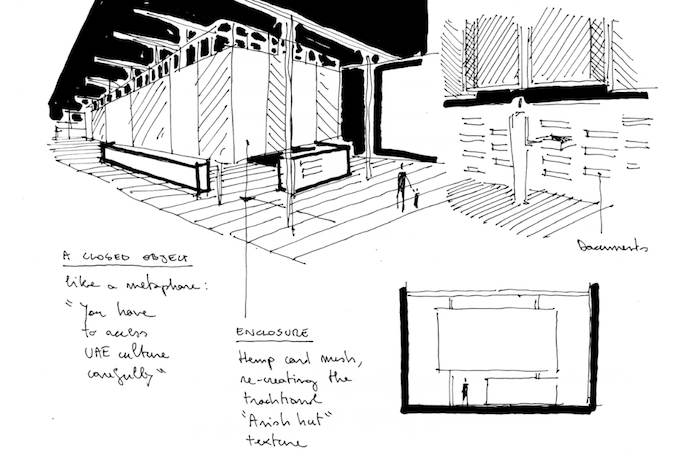 A CLOSED OBJECT
like a metaphore:
"You have
to access
UAE culture
carefully"
ENCLOSURE
Hemp cord mesh,
re-creating the
traditional
"Arish hut"
texture
Documents